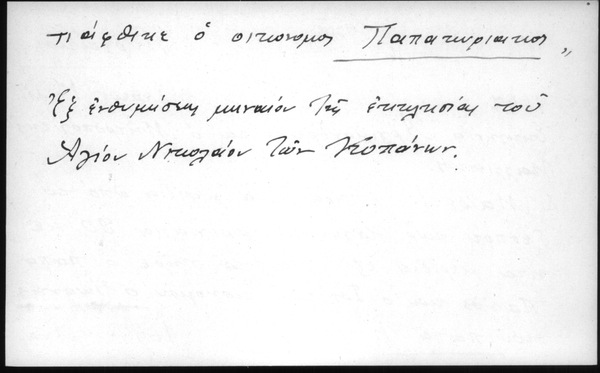 πιάφθικε ὁ οικονομος Παπακυριακος „
Ἐξ ἐνθυμήσεως μηναίου τῆς ἐκκλησίας τοῦ
Ἁγίου Νικολάου τῶν Κοπάνων.